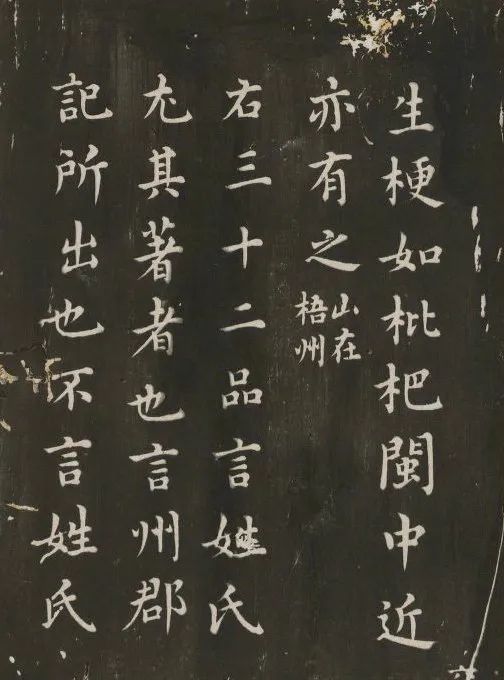 生梗如枇杷閩中近
亦有之山在梧州
右三十二品言姓氏
尤其著者也言州郡
記所出也不言姓氏